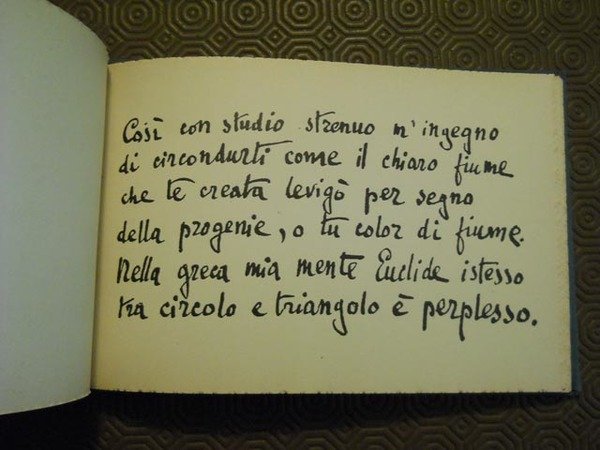 Così con studio strenuo m'ingegno
di circondurti come il chiaro fiume
che te creata levigò per segno
della progenie, o tu color di fiume.
Nella greca mia mente Euclide istesso
tra circolo e triangolo è perplesso.